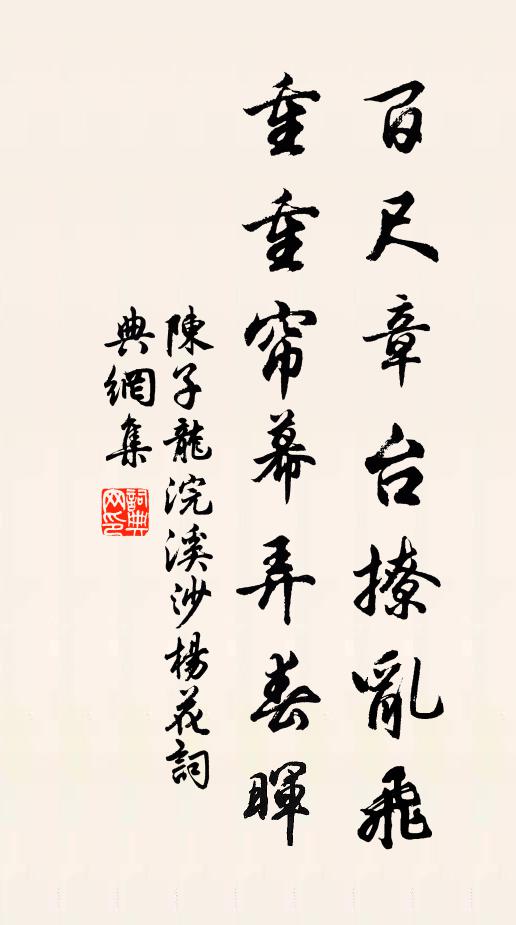 百尺章台撩亂飛
重重帘幕弄春暉
陳子龍浣溪沙楊花詞
典網集
詞典網印